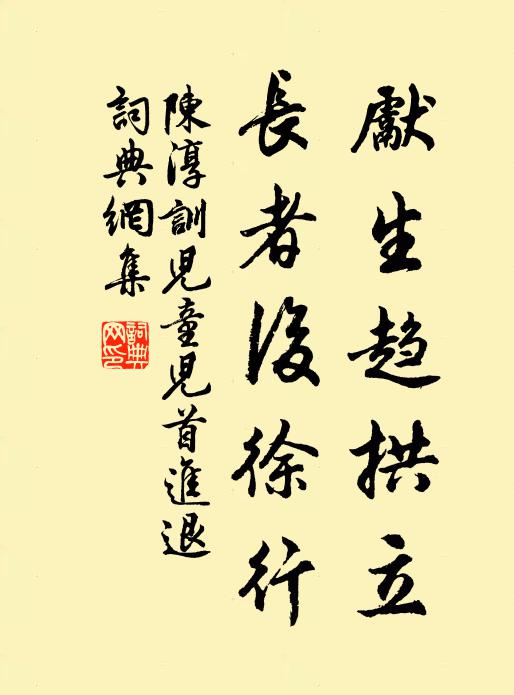 獻生趋拱立
長者後徐行
陳淳訓児童児首進退
詞典網集
詞典網印